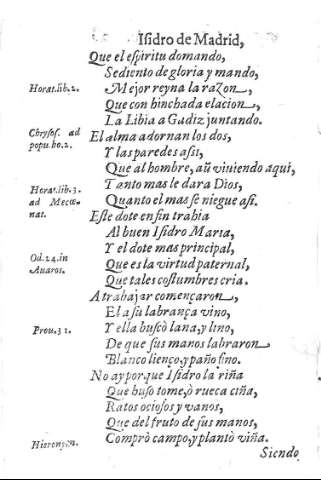 Isidro de Madrid,
Que el espiritu domando,
Sediento de gloria y mando,
Horat. lib. 2. Mejor reyna la razon,
Que con hinchada elacion,
La Libia a Gadiz juntando.
Chrysos. ad popu. ho. 2. El alma adornan los dos,
Y las paredes assi,
Que al hombre, aũ viuiendo aqui,
Horat. lib. 3. ad Mecœnat. Tanto mas le dara Dios,
Quanto el mas se niegue a si.
Este dote en fin trahia
Al buen Isidro Maria,
Y el dote mas principal,
Od. 24. in Auaros. Que es la virtud paternal,
Que tales costumbres cria.
A trabajar començaron,
El a su labrança vino,
Prou. 31. Y ella buscò lana, y lino,
De que sus manos labraron
Blanco lienço, y paño fino.
No ay porque Isidro la riña
Que huso tome, ò rueca ciña,
Ratos ociosos y vanos,
Que del fruto de sus manos,
Hieronym. Comprò campo, y plantò viña.
Siendo